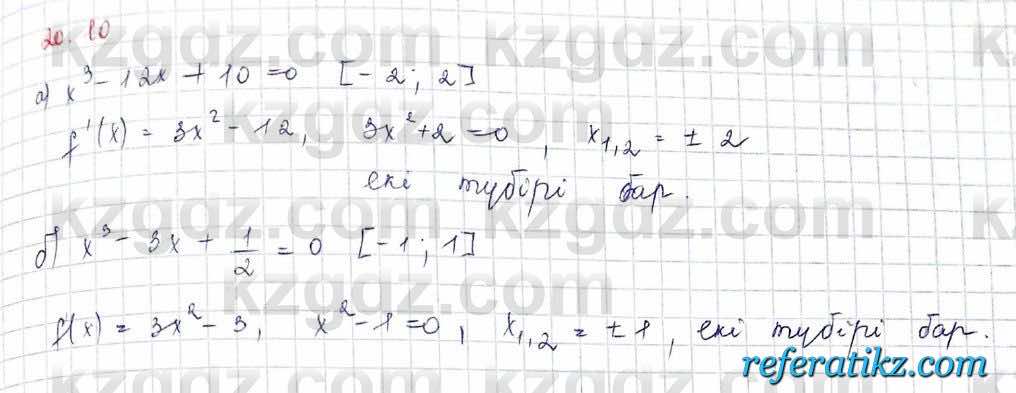 20.10
а) x³ - 12x + 10 = 0 [-2; 2]
f'(x) = 3x² - 12, 3x² + 2 = 0, x₁,₂ = ± 2
екі түбірі бар.
б) x³ - 3x + 1/2 = 0 [-1; 1]
f'(x) = 3x² - 3, x² - 1 = 0, x₁,₂ = ± 1, екі түбірі бар.
kzgdz.com kzgdz.com kzgdz.com
referatikz.com